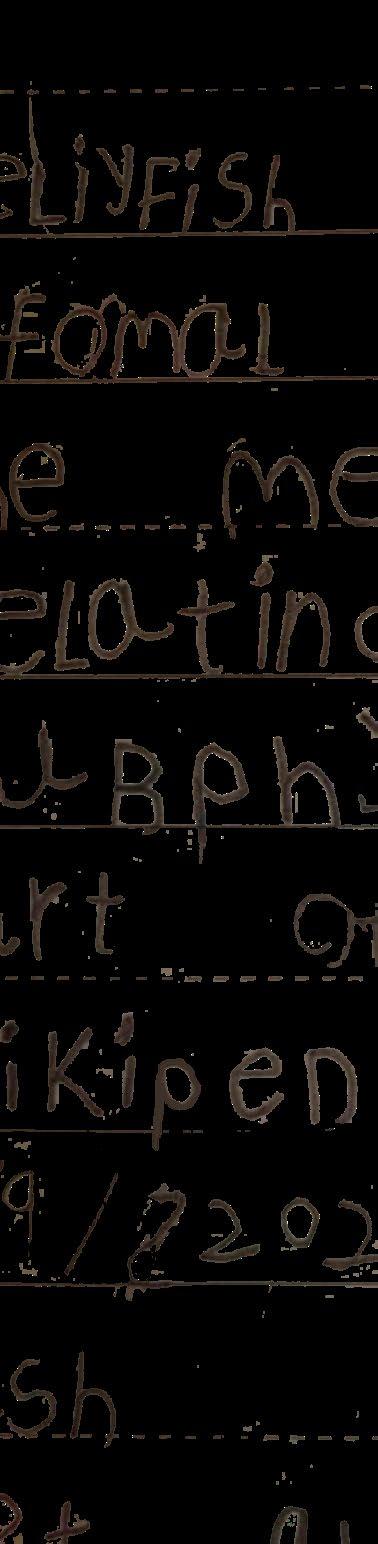 eLiyFish
fomal
e me
eLatin
u BPh
rt of
iKipen
9/2202
sh
t